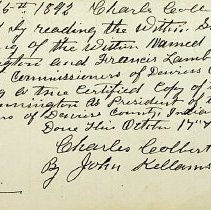 6th 1892 Charle Colb
by reading the within S
of the within Named
and Francis Lamb
Commissioners of Deuress Co
a true Certified Copy of
as President of
of Deuress County, India
Done This Octobr 17"
Charles Colbert
By John Kellams